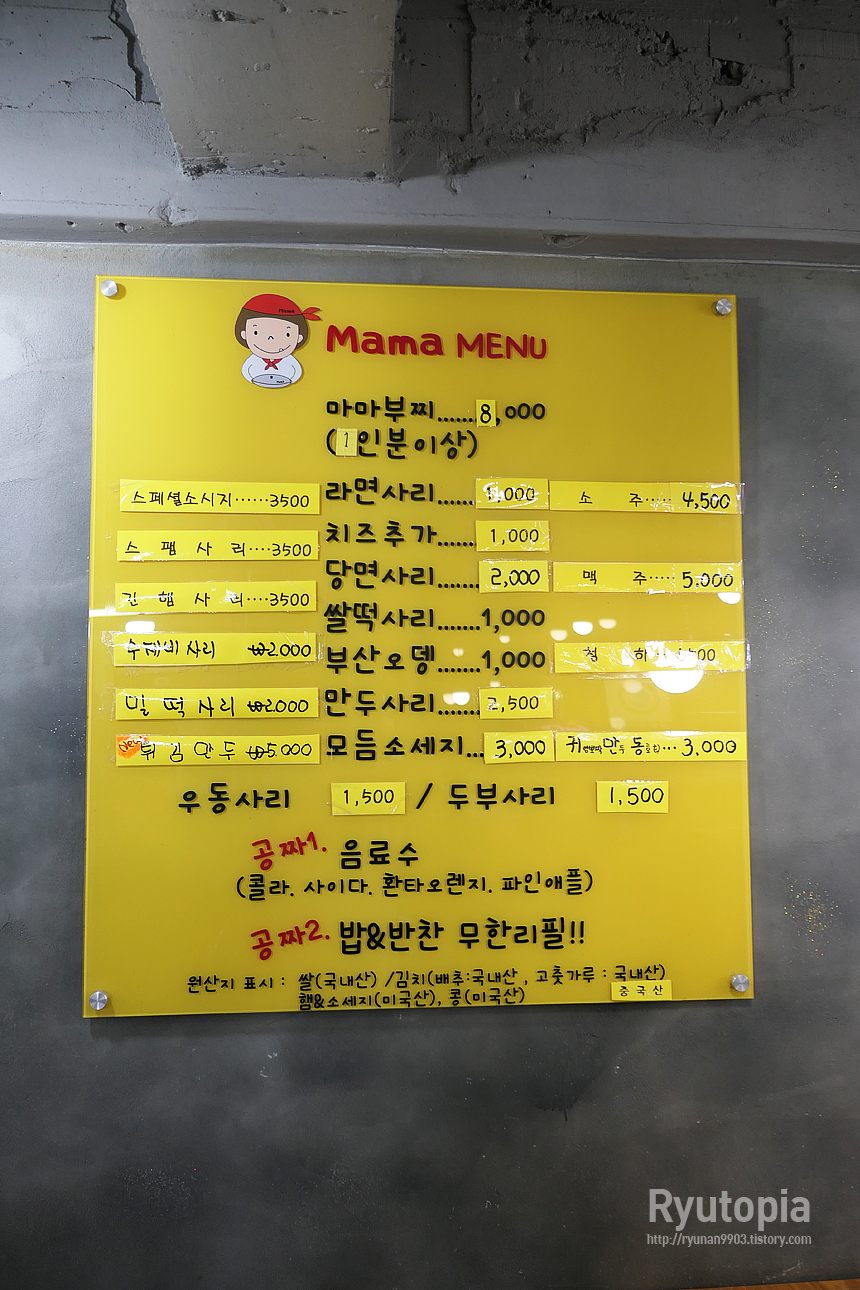 Mama
Mama MENU
마마부찌.......8,000
(1인분이상)
스페셜소시지......3500 라면사리...... 1,000 소 주..... 4,500
스 팸 사 리....3500 치즈추가...... 1,000
당면사리...... 2,000 맥 주..... 5.000
햄 사 리....3500 쌀떡사리.......1,000
수제비사리 ₩2.000 부산오뎅.......1,000 청 하
밀 떡 사리 ₩2.000 만두사리....... 2,500
New 튀김만두 ₩5.000 모듬소세지... 3,000 만두 ... 3.000
우동사리 1,500 / 두부사리 1,500
공짜1. 음료수
(콜라. 사이다. 환타오렌지. 파인애플)
공짜2. 밥&반찬 무한리필!!
원산지 표시 : 쌀(국내산) /김치(배추:국내산 , 고춧가루 : 국내산)
햄&소세지(미국산), 콩(미국산) 중국산
Ryutopia
http://ryunan9903.tistory.com